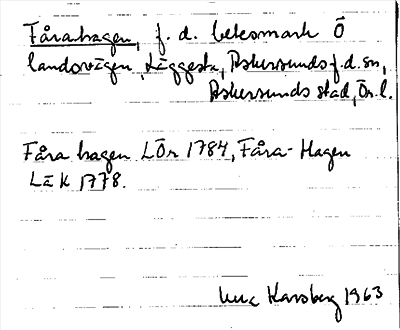 Fårahagen, f. d. betesmark Ö
landsvägen, Läggesta, Askersunds f.d. sn,
Askersunds stad, Ör. l.
Fåra hagen LÖr 1784, Fåra-Hagen
LäK 1778.
Karsberg 1963